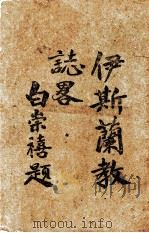 伊斯蘭教
誌畧
白崇禧題
www.duxiu.com